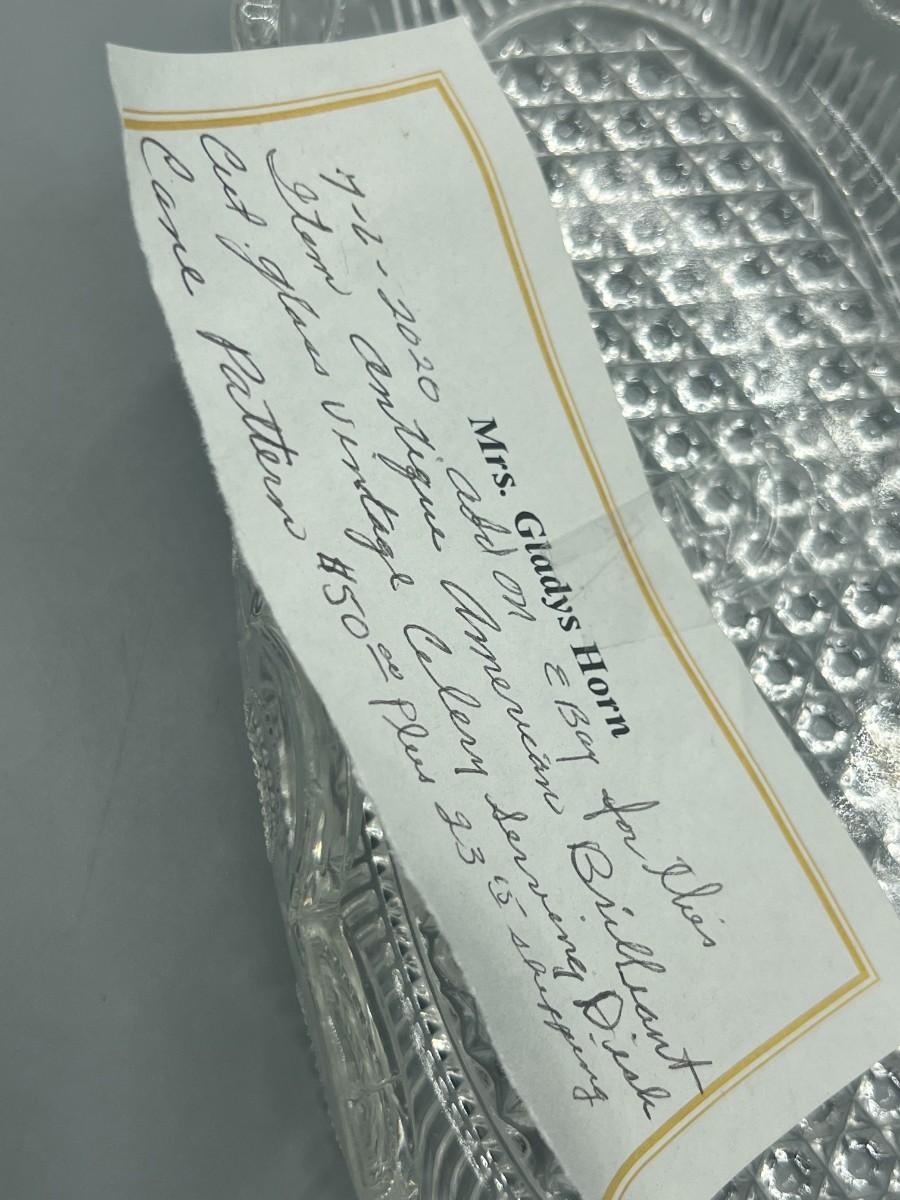 Mrs. Gladys Horn
7-2-2020 add on EBay for this
Item Antique American Brilliant
Cut glass Vintage Celery Serving Dish
Cane Pattern $50 00 Plus 23 15 shipping